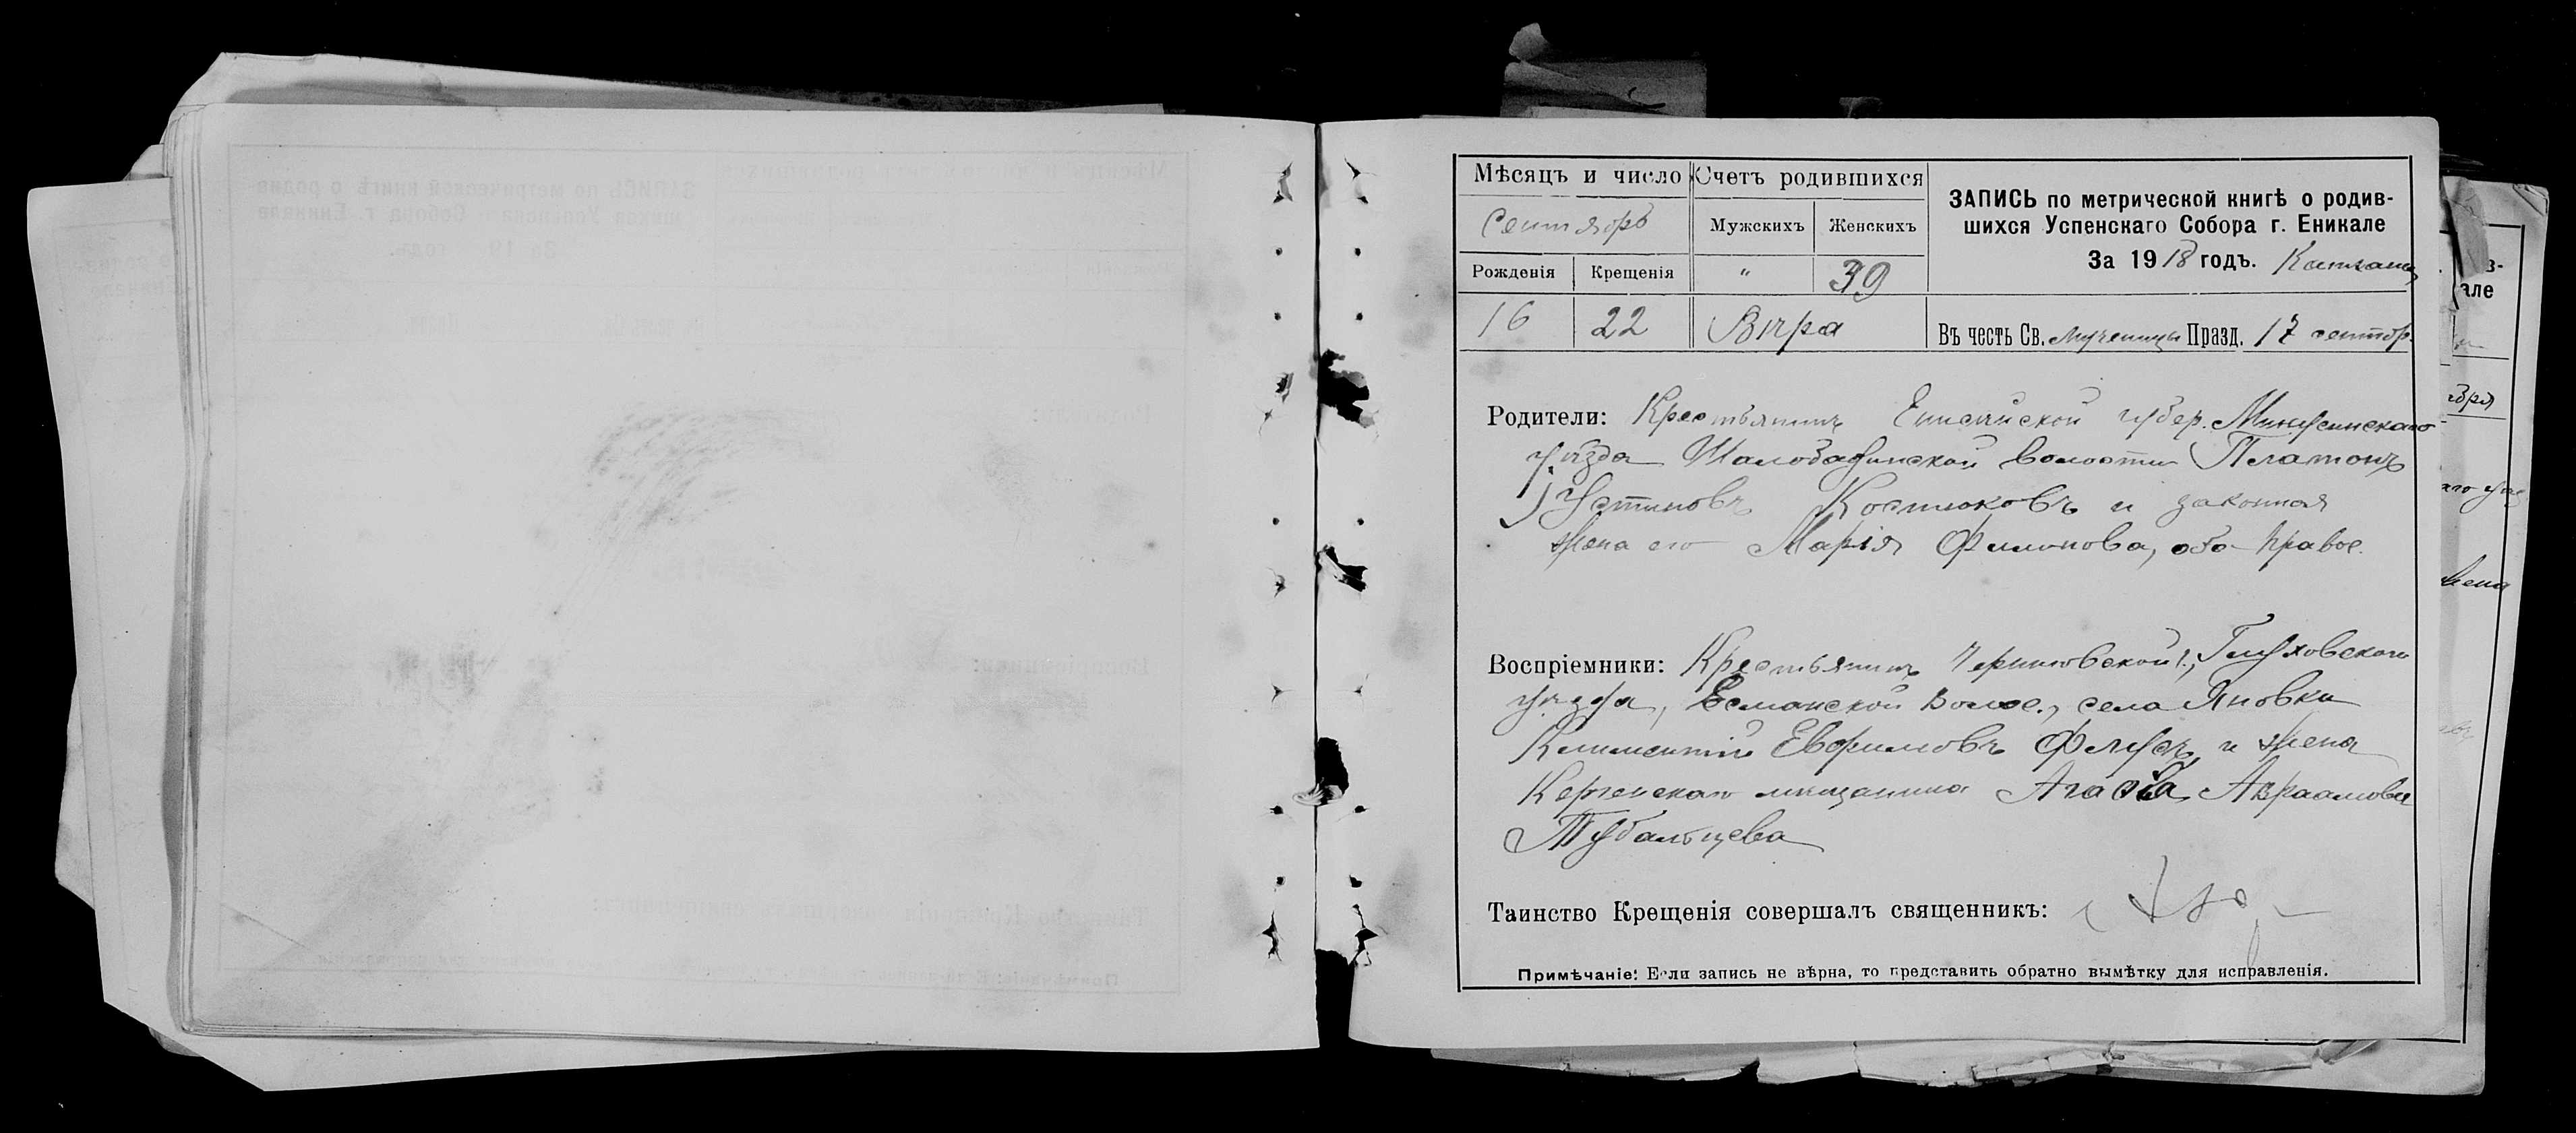 Мѣсяцъ и число
Счетъ родившихся
ЗАПИСЬ по метрической книгѣ о родив-
шихся Успенскаго Собора г. Еникале
За 1918 годъ.
Сентябрь
Мужскихъ
Женскихъ
Рожденія
Крещенія
"
39
16
22
Вѣра
Въ честь Св. мученицы Празд. 17 сентбр.
Родители: Крестьянинъ Енисейской губер. Минусинскаго
уѣзда волости Платонъ
Устиновъ Костюковъ и законная
жена его Марія Филипова, оба правос.
Воспріемники: Крестьянинъ Черниговской г., Глуховскаго
уѣзда, Есманской волос., села Яновки
Климентій Евфимовъ и жена
Керченскаго мѣщанина Агафія Авраамова
Тубальцева
Таинство Крещенія совершалъ священникъ:
Примѣчаніе: Если запись не вѣрна, то представить обратно вымѣтку для исправленія.